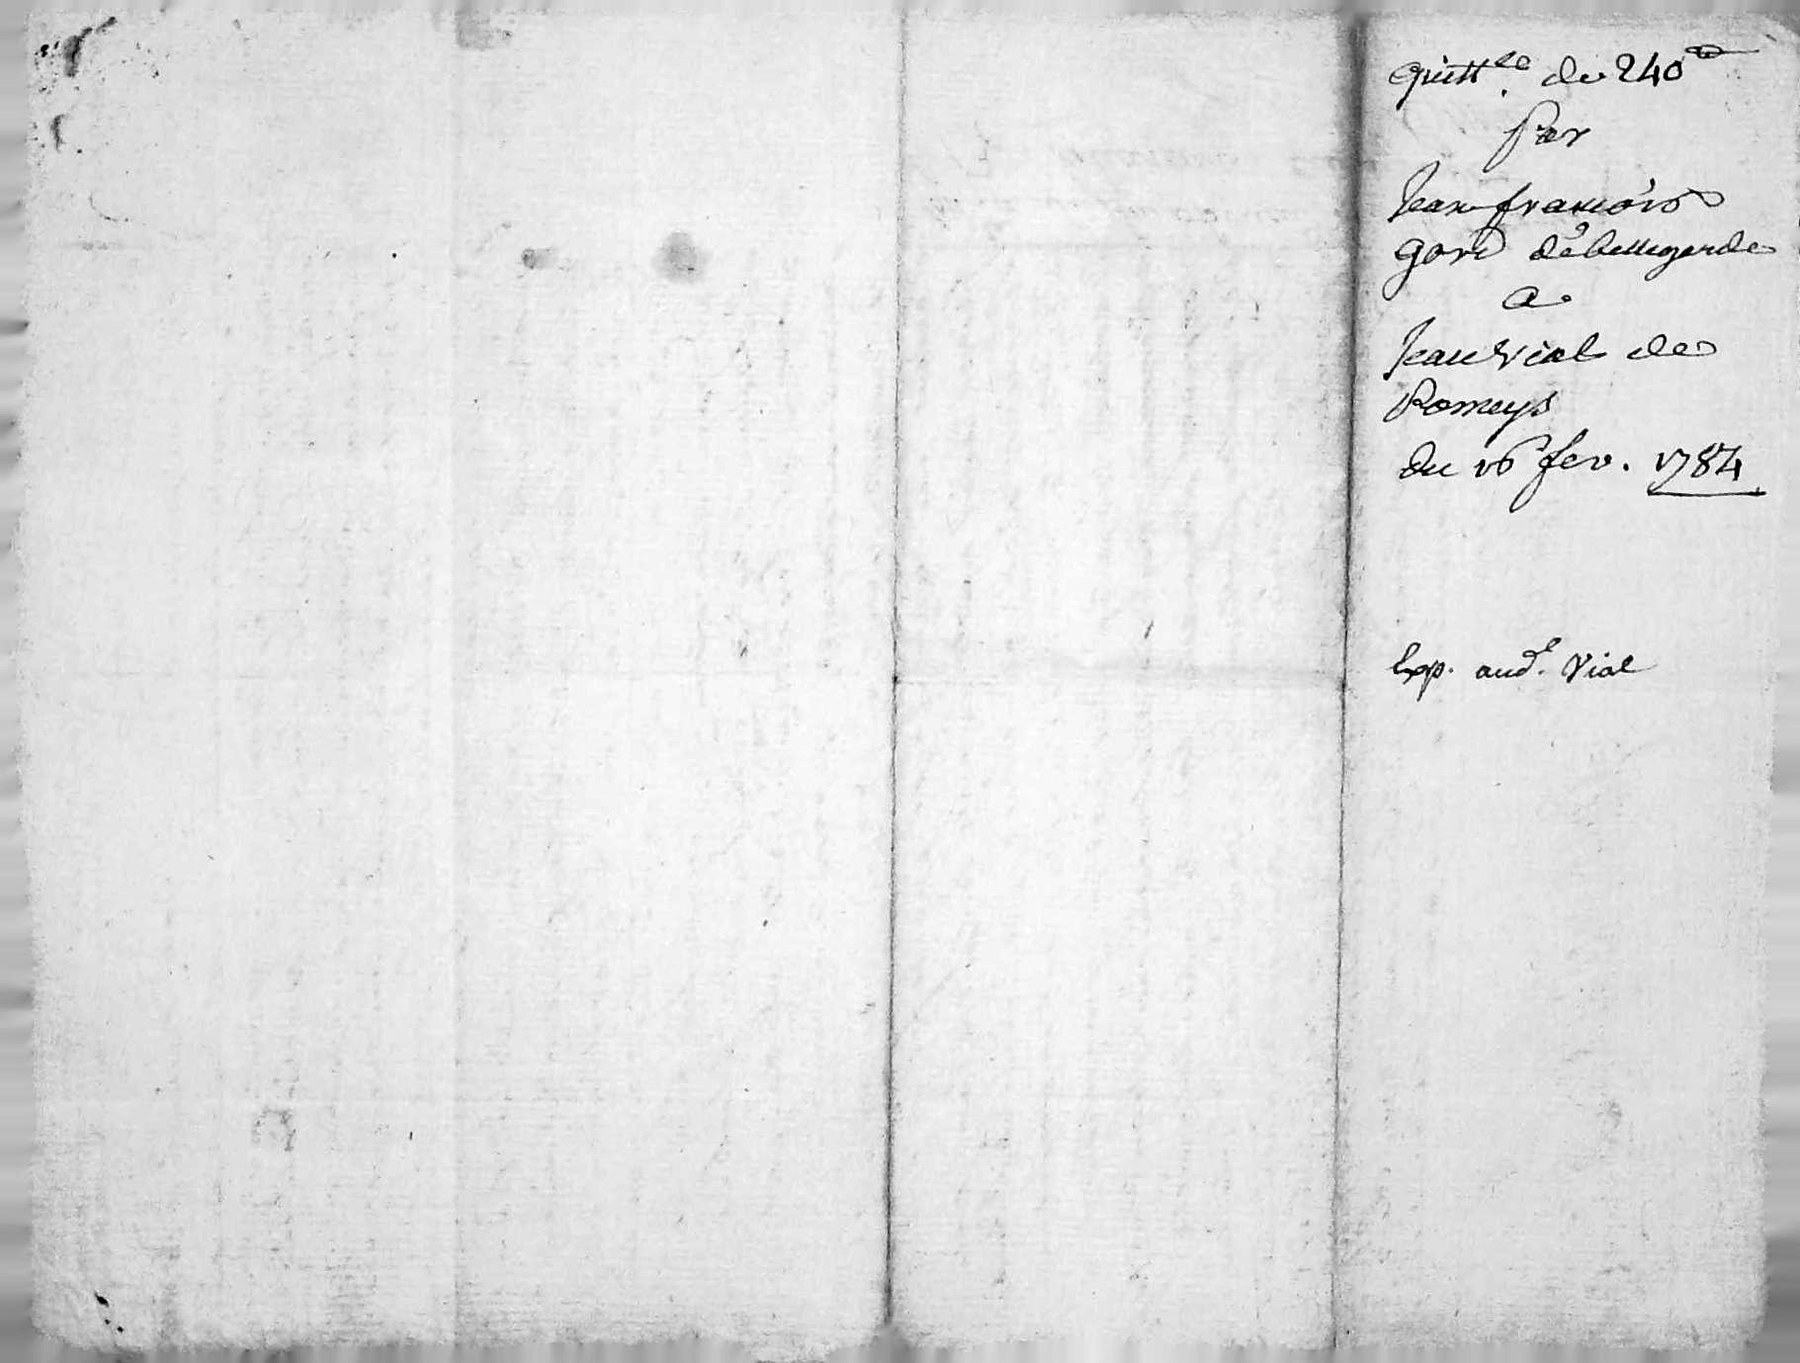 quitt.ce de 240 tt
Par
Jean françois
gord de bellegarde
a
Jean Vial de
Pomeys
du 16 fev. 1784
Exp. aud.t Vial